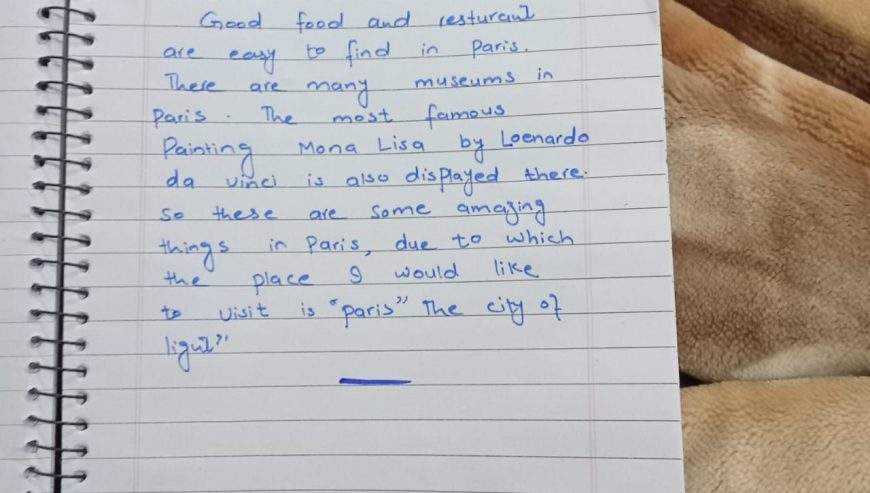 Good food and resturant
are easy to find in Paris.
There are many museums in
Paris. The most famous
Painting Mona Lisa by Loenardo
da vinci is also displayed there.
So these are some amazing
things in Paris, due to which
the place I would like
to visit is "paris" The city of
light"